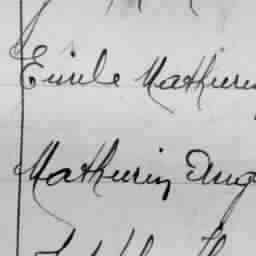 Emile Mathurin
Mathurin Aug